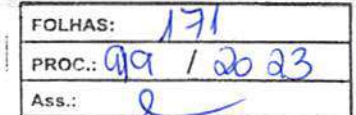 FOLHAS: 171
PROC.: 99 / 2023
Ass.: